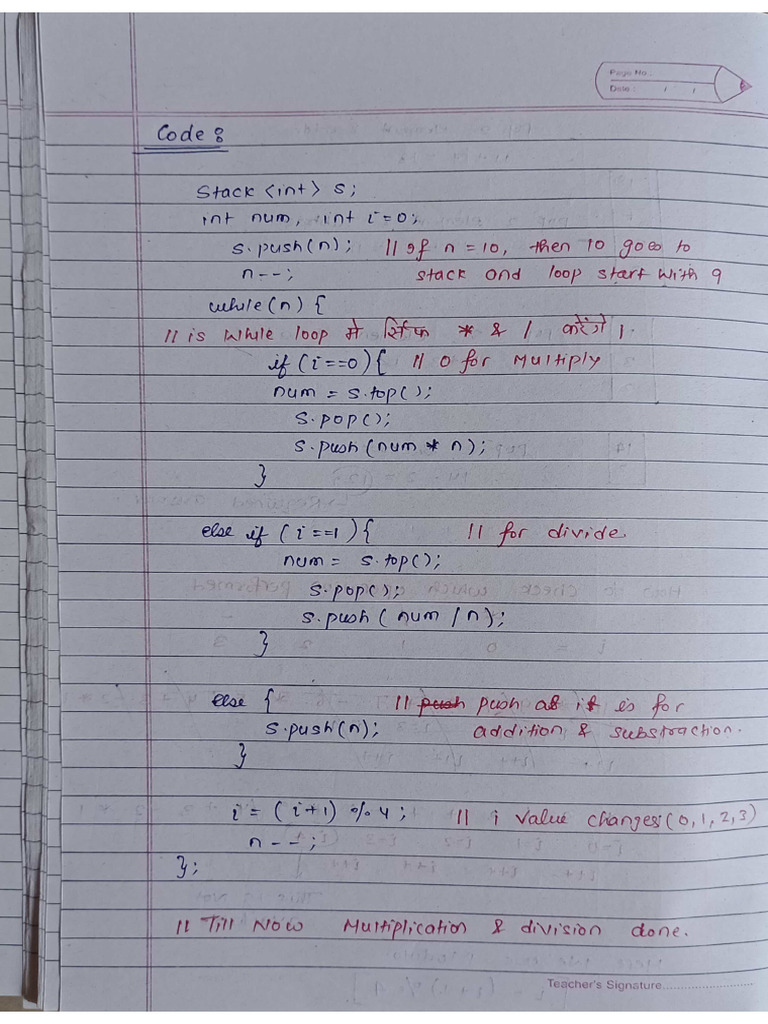 Page No.
Date : / /
Code :
Stack <int> s;
int num, int i=0;
s.push(n); // If n = 10, then 10 goes to
n--; stack and loop start with 9
while(n) {
// is while loop मे सिर्फ * & / करेंगे ।
if (i==0){ // 0 for Multiply
num = s.top();
s.pop();
s.push(num * n);
}
else if (i==1){ // for divide
num = s.top();
s.pop();
s.push( num / n);
}
else { // push push as it is for
s.push(n); addition & substraction.
}
i = (i+1) % 4; // i value changes(0,1,2,3)
n--;
};
// Till Now Multiplication & division done.
Teacher's Signature